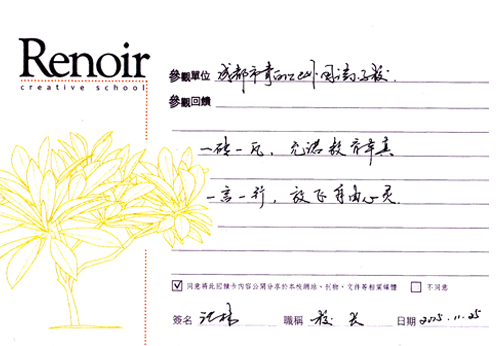 Renoir
creative school
參觀單位 成都市青白江外国语学校
參觀回饋
一砖一瓦，充溢教育本真
一言一行，放飞自由心灵
同意將此回饋卡內容公開分享於本校網站、刊物、文件等相關媒體 不同意
簽名 職稱 校长 日期 2025.11.25